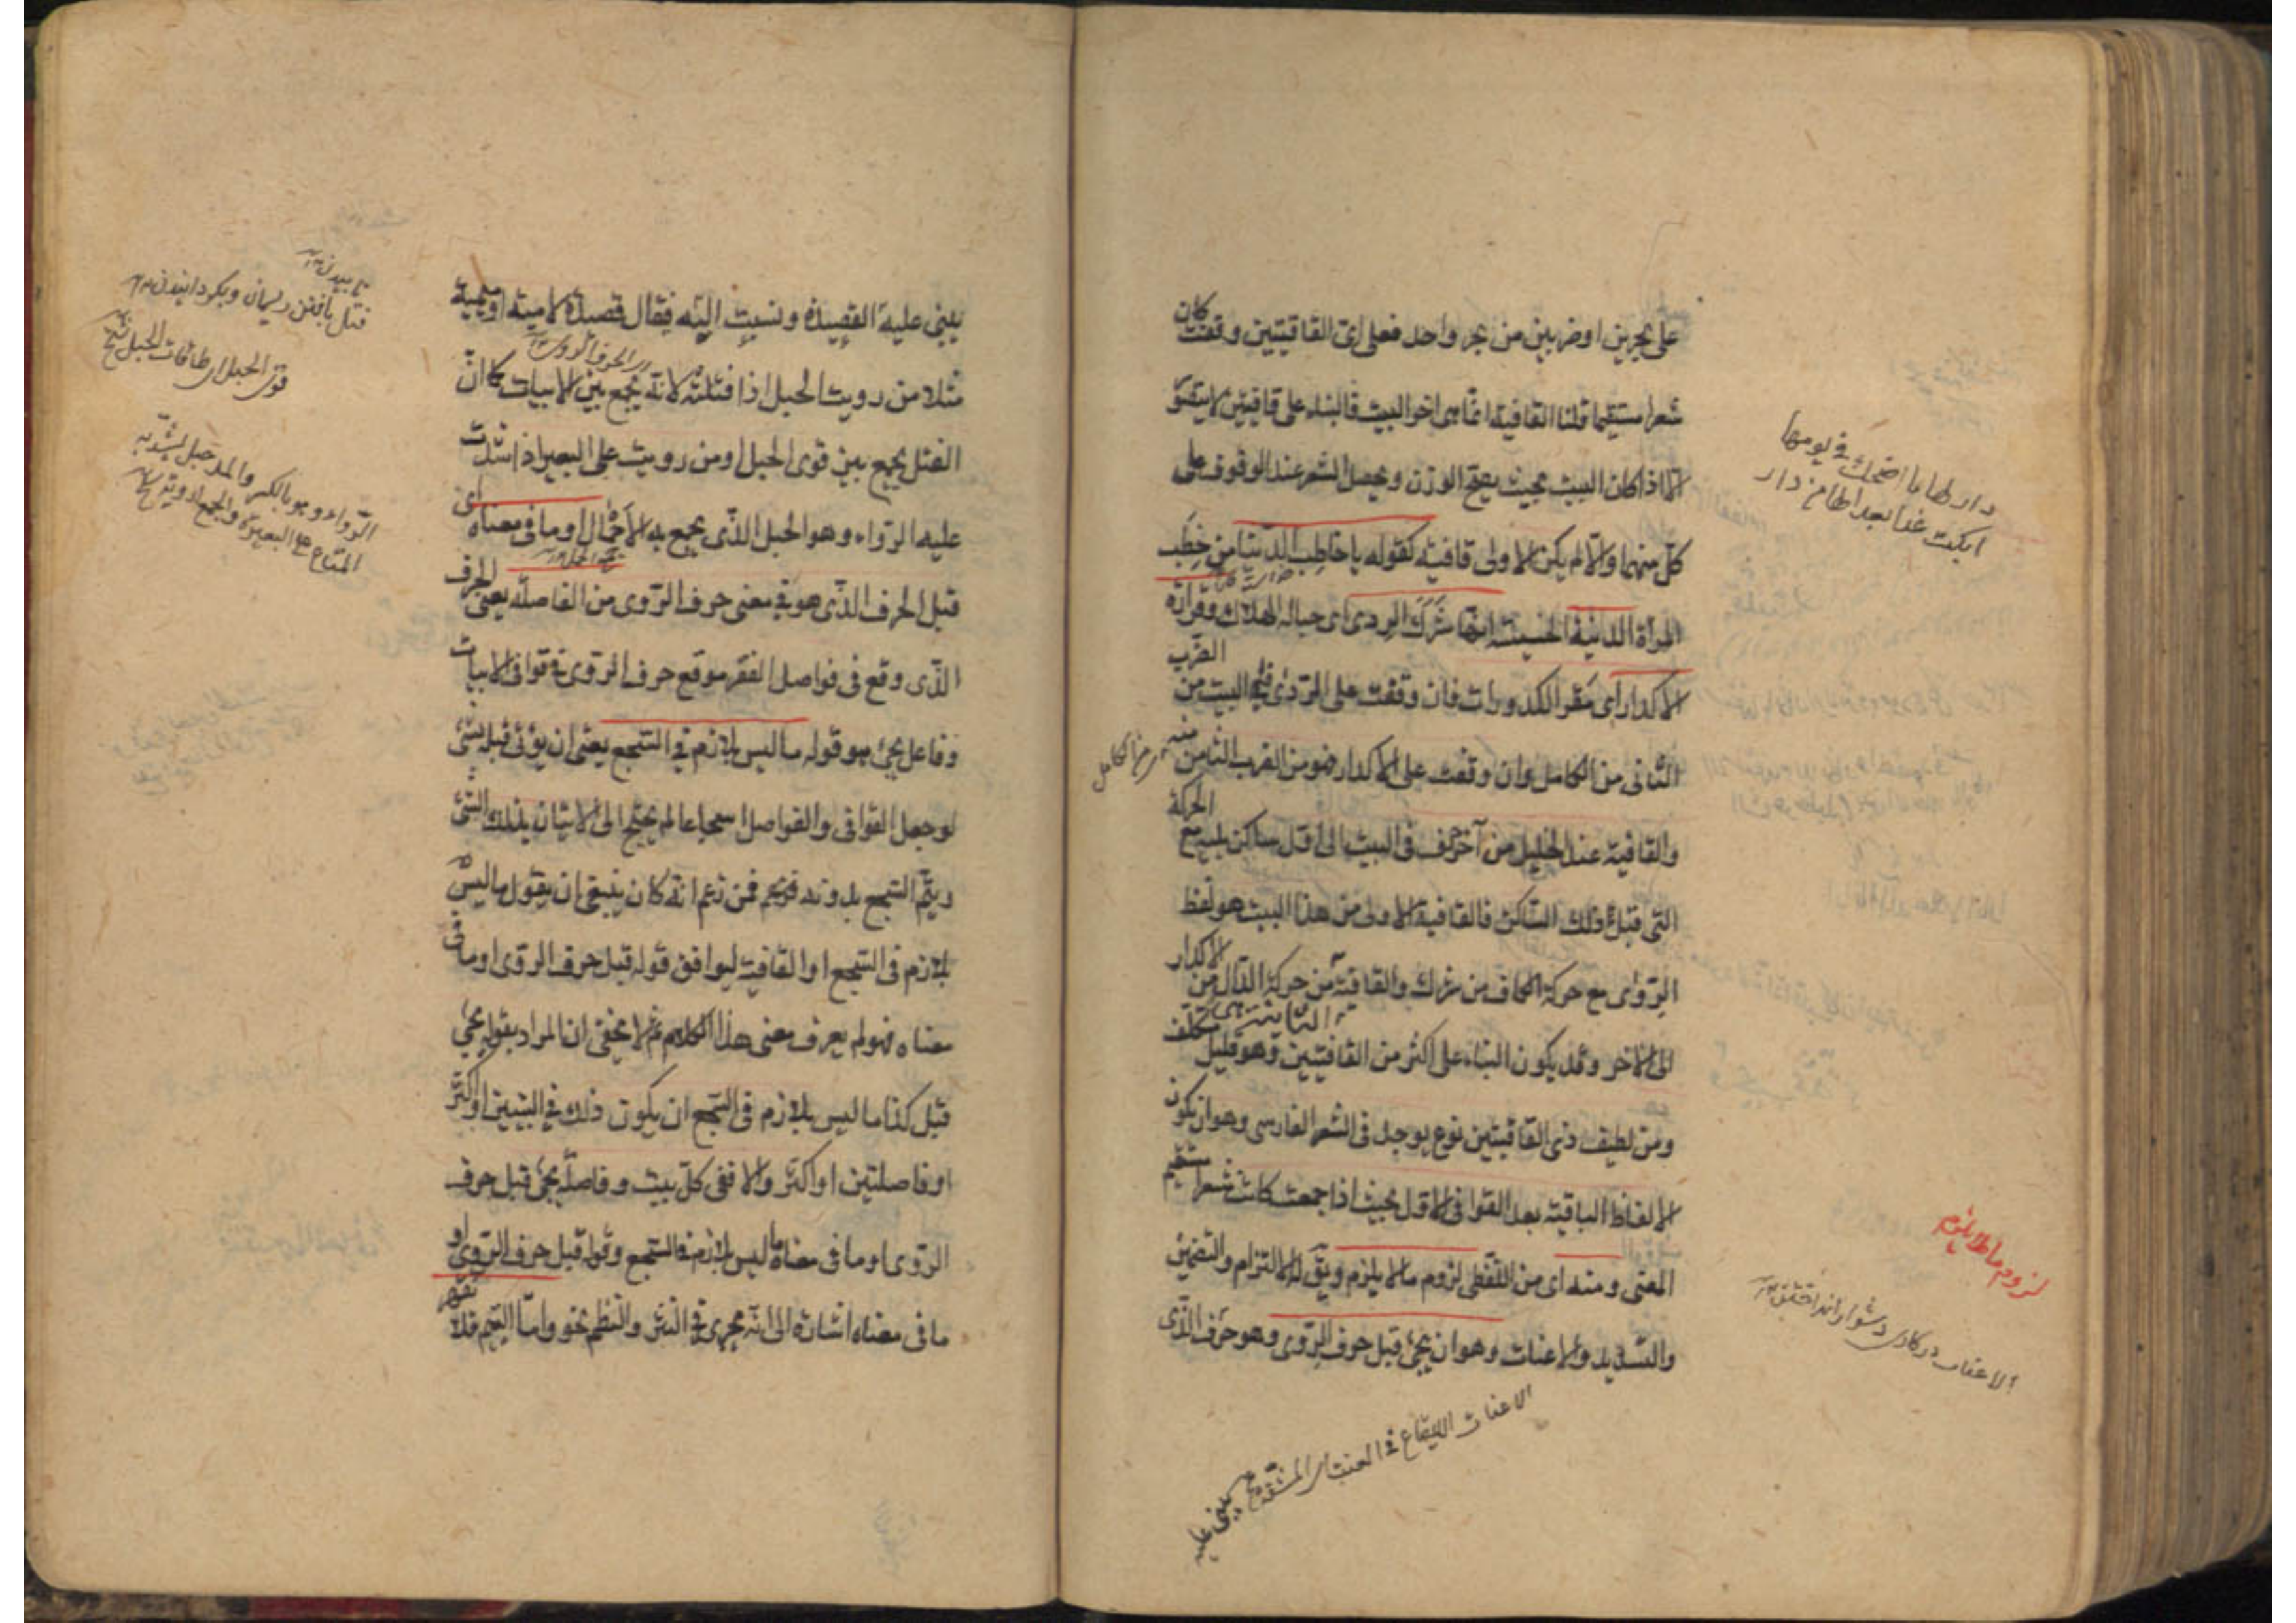 على بحرين او ضربين من بحر واحد فعلى اى القافيتين وقفت كان
شعرا مستقيما قلنا القافية انما هى اخر البيت فالبناء على قافيتين لا يتصور
الا اذا كان البيت بحيث يصح الوزن ويحصل الشعر عند الوقوف على
كل منهما والا لم يكن الاولى قافية كقوله يا خاطب الدنيا من خطب
المرأة الدنية الخسيسة انها شرك الردى اى حبالة الهلاك وقرارة
الاكدار اى مقر الكدورات فان وقفت على الردى فالبيت من الضرب
الثانى من الكامل وان وقفت على الاكدار فهو من الضرب الثامن منه
والقافية عند الخليل من آخر حرف فى البيت الى اول ساكن يليه مع الحركة
التى قبل ذلك الساكن فالقافية الاولى من هذا البيت هو لفظ
الردى مع حركة الكاف من شرك والقافية الثانية هى من حركة الدال من الاكدار
الى الاخر وقد يكون البناء على اكثر من القافيتين وهو قليل متكلف
ومن لطيف ذى القافيتين نوع يوجد فى الشعر الفارسى وهو ان يكون
الالفاظ الباقية بعد القوافى الاول بحيث اذا جمعت كانت شعرا مستقيم
المعنى ومنه اى من اللفظى لزوم ما لا يلزم ويق له الالتزام والتضمين
والتشديد والاعنات وهو ان يجئ قبل حرف الروى وهو حرف الذى
يبنى عليه
دار لها ما اضحكت فى يومها
ابكت غدا بعدا لها من دار
لزوم ما لا يلزم
يبنى عليه القصيدة ونسبت اليه فيقال قصيدة لامية او ميمية
مثلا من رويت الحبل اذا فتلته لانه يجمع بين الابيات كما ان
الفتل يجمع بين قوى الحبل او من رويت على البعير اذا شددت
عليه الرواء وهو الحبل الذى يجمع به الاحمال او ما فى معناه اى
قبل الحرف الذى هو فى معنى حرف الروى من الفاصلة يعنى الحرف
الذى وقع فى فواصل الفقر موقع حرف الروى فى قوافى الابيات
وفاعل يجئ هو قوله ما ليس بلازم فى السجع يعنى ان يؤتى قبله بشئ
لو جعل القوافى والفواصل اسجاعا لم يحتج الى الاتيان بذلك الشئ
ويتم السجع بدونه فمن زعم انه كان ينبغى ان يقول ما ليس
بلازم فى السجع او القافية ليوافق قوله قبل حرف الروى او ما فى
معناه فهو لم يعرف معنى هذا الكلام ثم لا يخفى ان المراد بقوله يجئ
قبل كذا ما ليس بلازم فى السجع ان يكون ذلك فى البيتين او اكثر
او فاصلتين او اكثر والا ففى كل بيت وفاصلة يجئ قبل حرف
الروى او ما فى معناه ما ليس بلازم فى السجع وقوله قبل حرف الروى او
ما فى معناه اشارة الى انه يجرى فى النثر والنظم نحو واما اليتيم فلا تقهر